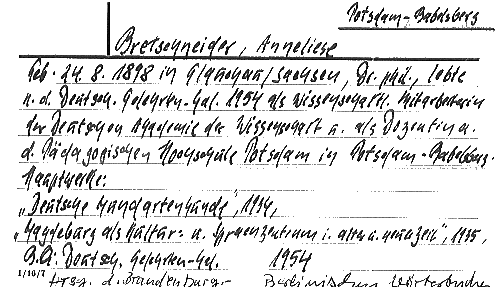 Potsdam-Babelsberg
Bretschneider, Anneliese
Geb. 24.8.1898 in Glauchau/Sachsen, Dr. phil., lebte
n. d. Deutsch. Gelehrten-Kal. 1954 als wissenschaftl. Mitarbeiterin
der Deutschen Akademie der Wissenschaft u. als Dozentin a.
d. Pädagogischen Hochschule Potsdam in Potsdam-Babelsberg.
Hauptwerke:
„Deutsche Mundartenkunde", 1934,
„Magdeburg als Kultur- u. Sprachzentrum i. alter u. neuer Zeit", 1935,
Deutsch. Gelehrten-Kal. 1954
1/10/7
Hrsg. d. Brandenburg- Berlinischen Wörterbuches